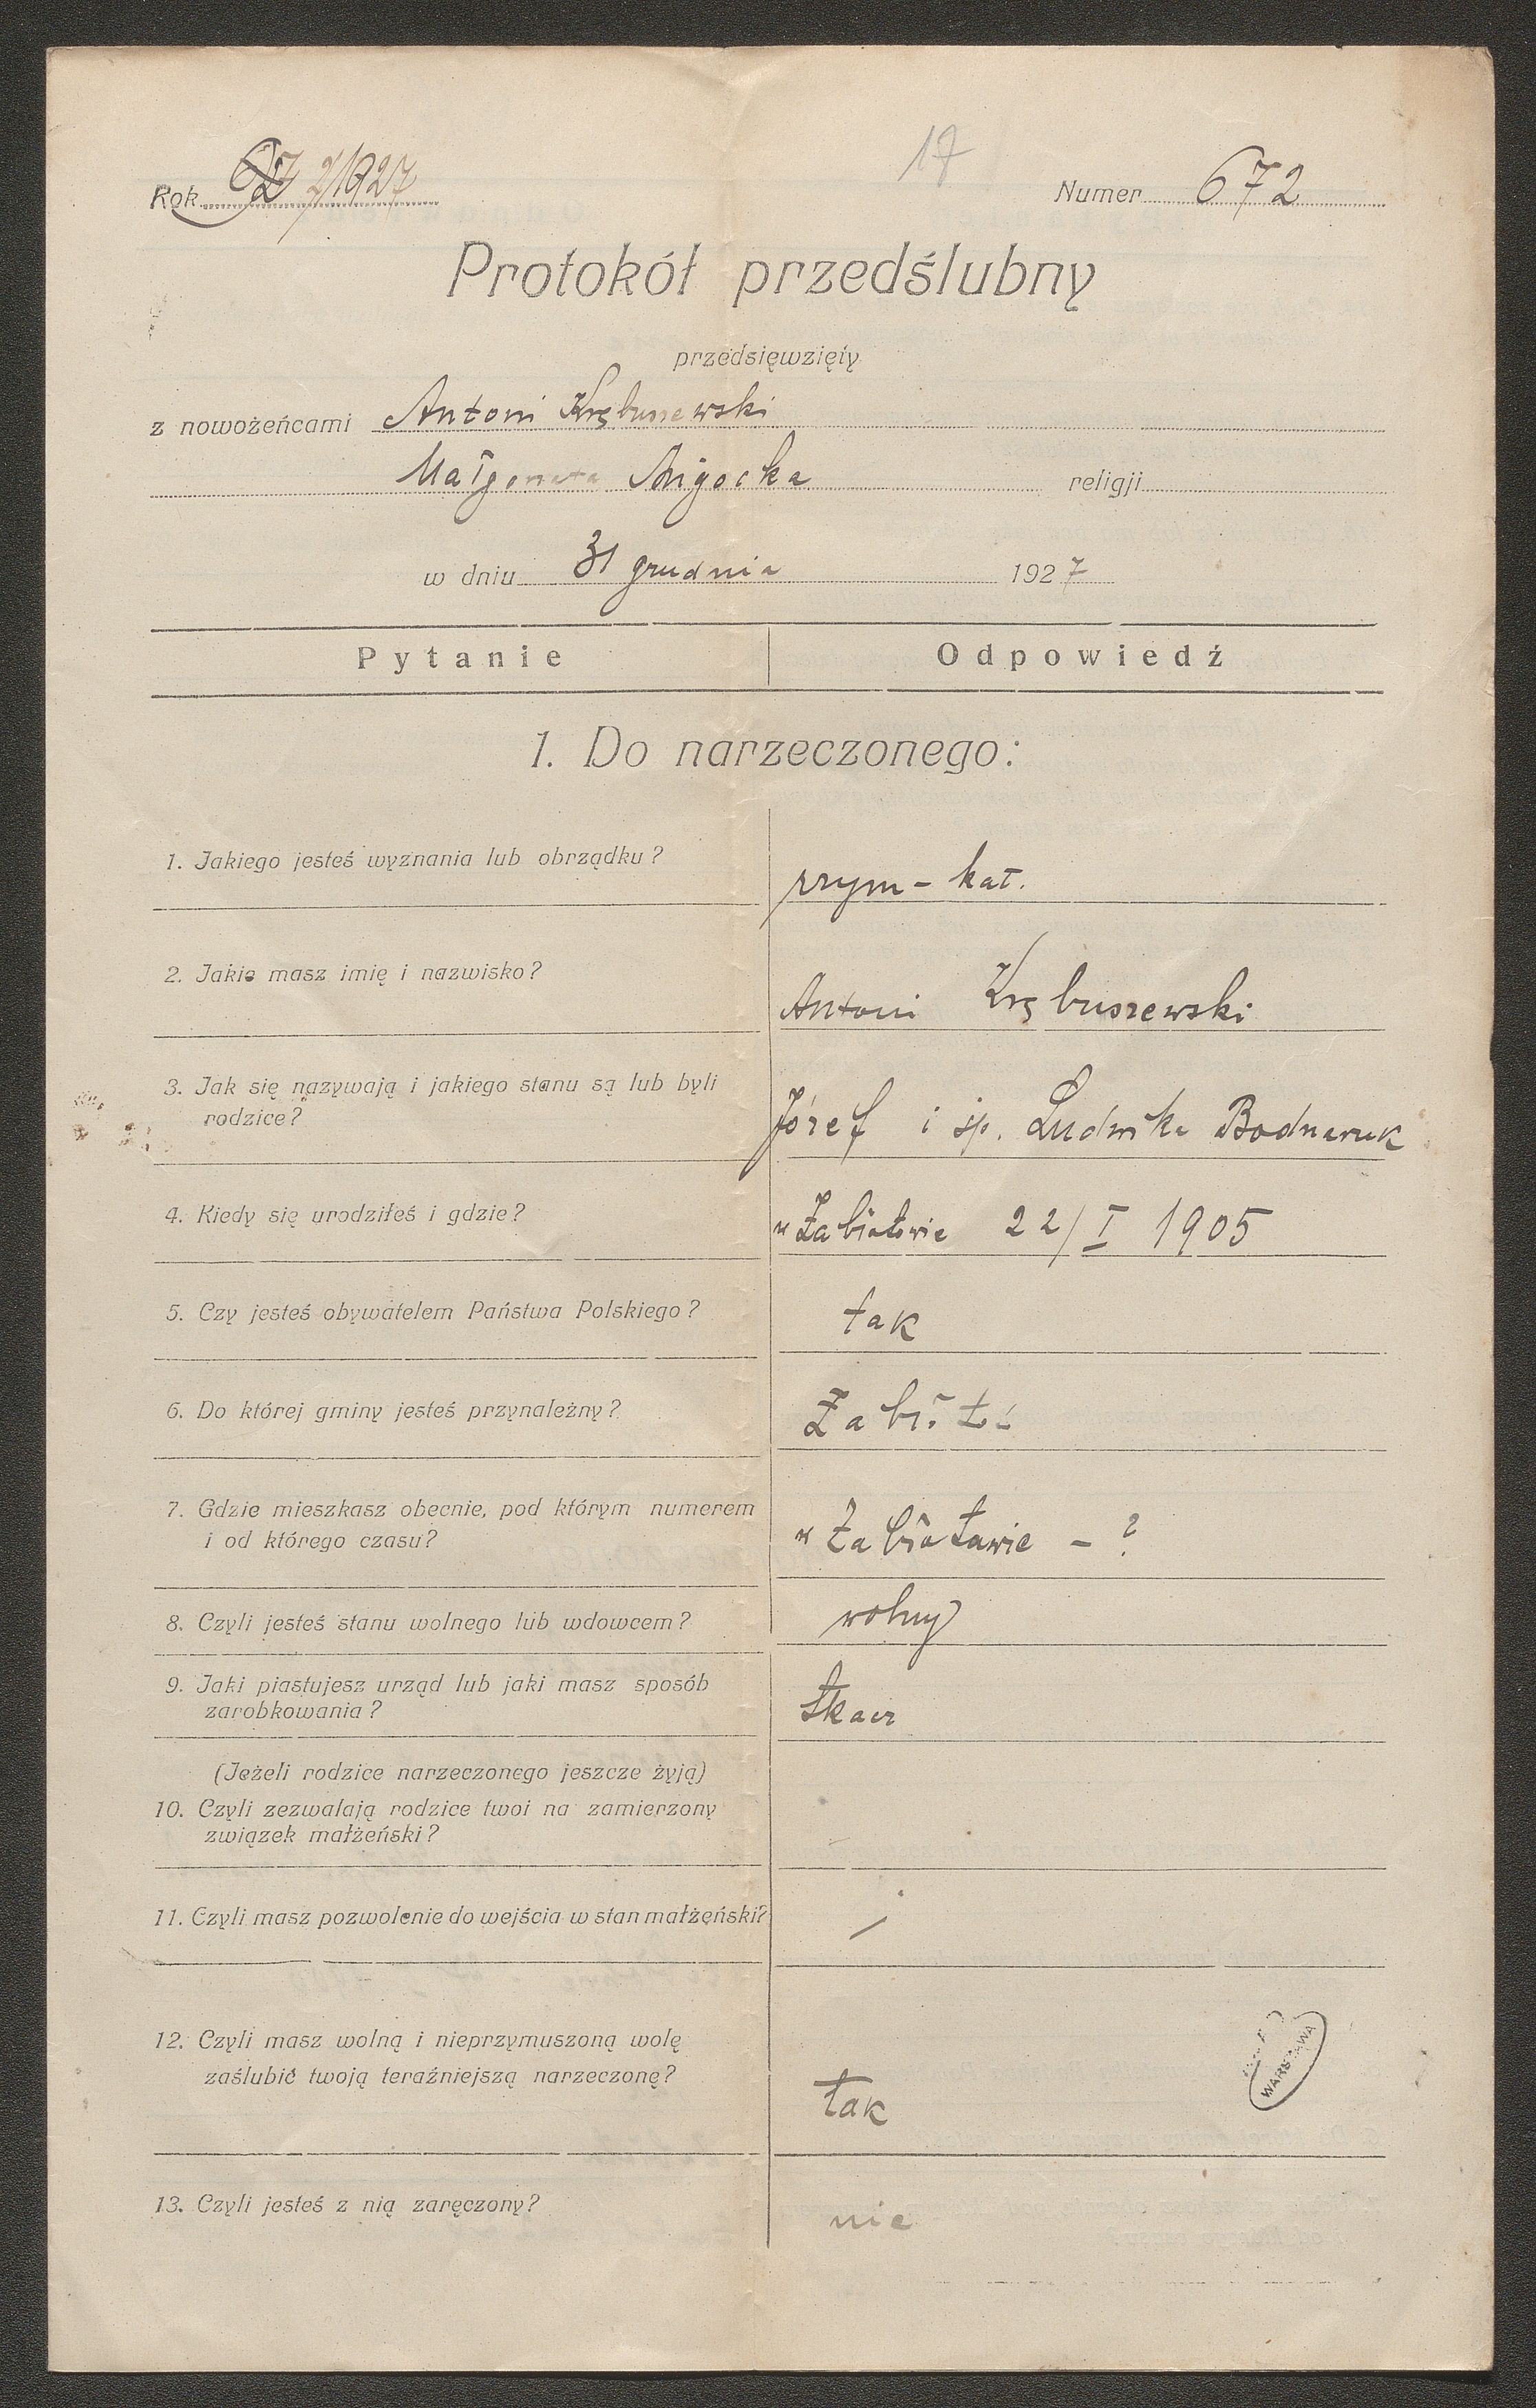 Rok 2/1927
17
Numer 672
Protokół przedślubny
przedsięwzięty
z nowożeńcami Antoni Krębuszewski
Małgorzata religji
w dniu 31 grudnia 1927
Pytanie Odpowiedź
1. Do narzeczonego:
1. Jakiego jesteś wyznania lub obrządku?
rzym-kat.
2. Jakie masz imię i nazwisko?
Antoni Krębuszewski
3. Jak się nazywają i jakiego stanu są lub byli
rodzice?
Józef i śp. Ludwika Bodnaruk
4. Kiedy się urodziłeś i gdzie?
w Zabłotowie 22/I 1905
5. Czy jesteś obywatelem Państwa Polskiego?
tak
6. Do której gminy jesteś przynależny?
7. Gdzie mieszkasz obecnie, pod którym numerem
i od którego czasu?
w Zabłotowie - ?
8. Czyli jesteś stanu wolnego lub wdowcem?
wolny
9. Jaki piastujesz urząd lub jaki masz sposób
zarobkowania?
tkacz
(Jeżeli rodzice narzeczonego jeszcze żyją)
10. Czyli zezwalają rodzice twoi na zamierzony
związek małżeński?
11. Czyli masz pozwolenie do wejścia w stan małżeński?
12. Czyli masz wolną i nieprzymuszoną wolę
zaślubić twoją teraźniejszą narzeczonę?
tak
WARSZAWA
13. Czyli jesteś z nią zaręczony?
nie